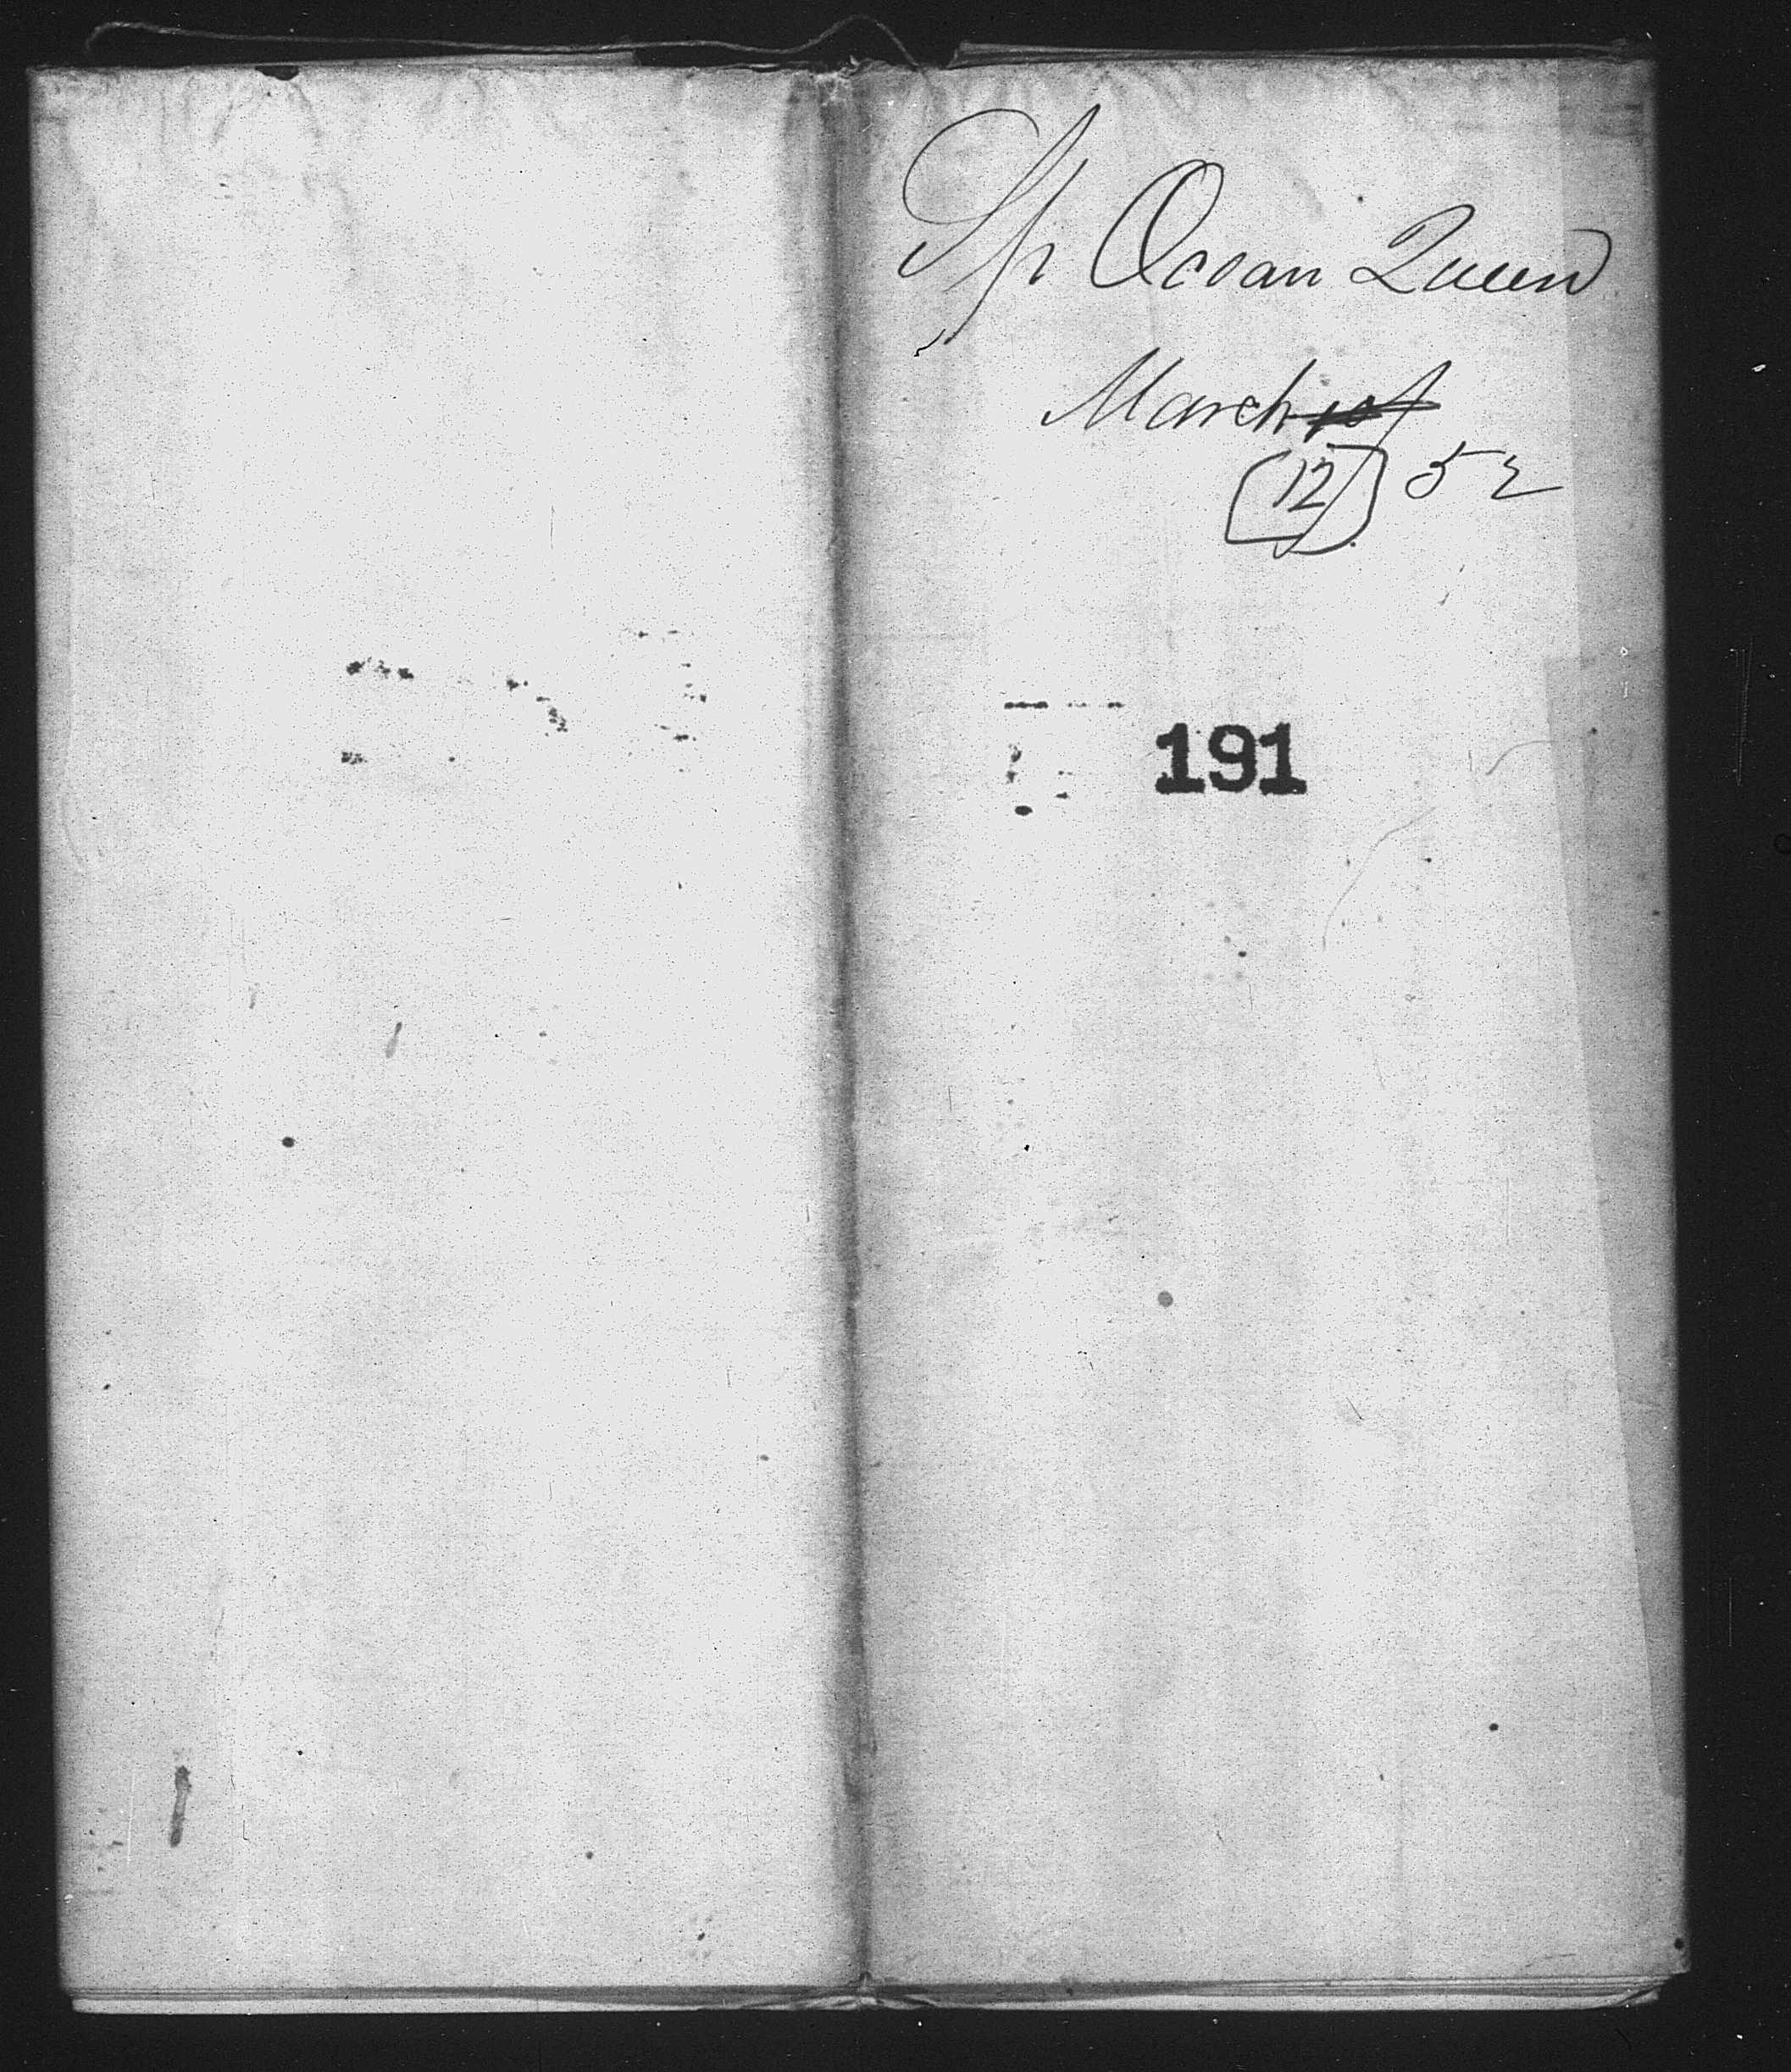 Sh Ocean Queen
March
12 52
191